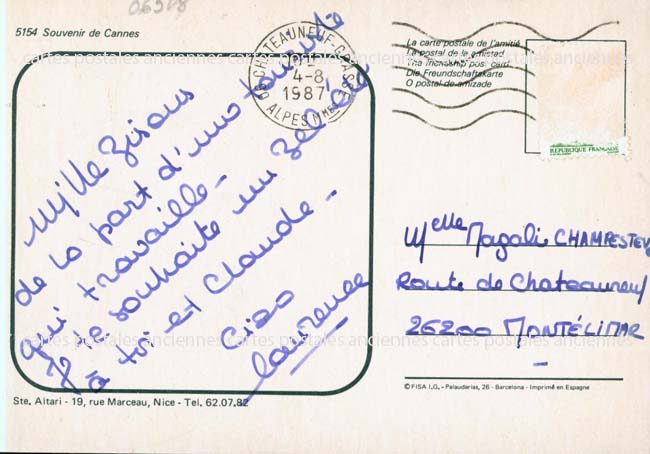 06508
5154 Souvenir de Cannes
06 CHATEAUNEUF-GRASSE
4-8
1987
ALPES Mmes
La carte postale de l'amitié
La postal de la amistad
The friendship post card
Die Freundschaftskarte
O postal de amizade
REPUBLIQUE FRANÇAISE
Mille bisous
de la part d'une touriste
qui travaille -
Je te souhaite un bel été
à toi et Claude -
Ciao
Laurence
Melle Magali CHAMPESTEV
Route de Chateauneuf
26200 MONTÉLIMAR
cartes postales anciennes cartes postales anciennes cartes postales anciennes
cartes postales anciennes cartes postales anciennes cartes postales anciennes
© FISA I.G. - Palaudarias, 26 - Barcelona - Imprimé en Espagne
Ste. Altari - 19, rue Marceau, Nice - Tel. 62.07.82